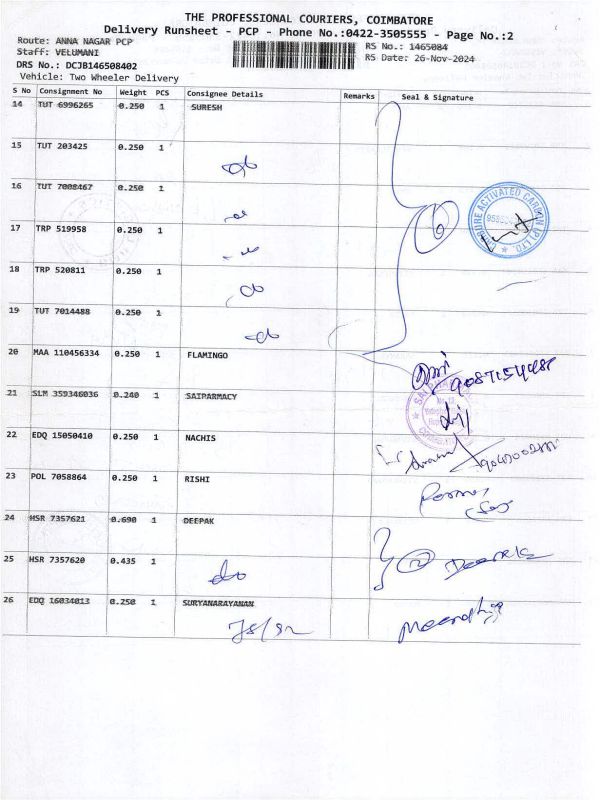 THE PROFESSIONAL COURIERS, COIMBATORE
Delivery Runsheet - PCP - Phone No.:0422-3505555 - Page No.:2
Route: ANNA NAGAR PCP
RS No.: 1465084
Staff: VELUMANI
RS Date: 26-Nov-2024
DRS No.: DCJB146508402
Vehicle: Two Wheeler Delivery
S No Consignment No Weight PCS Consignee Details Remarks Seal & Signature
14 TUT 6996265 0.250 1 SURESH
15 TUT 203425 0.250 1 do
16 TUT 7008467 0.250 1 do
17 TRP 519958 0.250 1 do
18 TRP 520811 0.250 1 do
19 TUT 7014488 0.250 1 do
6
CARBURE ACTIVATED CARBON (P) LTD
20 MAA 110456334 0.250 1 FLAMINGO
21 SLM 359346036 0.240 1 SAIPARMACY
22 EDQ 15050410 0.250 1 NACHIS
23 POL 7058864 0.250 1 RISHI
24 HSR 7357621 0.690 1 DEEPAK
25 HSR 7357620 0.435 1 do
2 Deepak
26 EDQ 16034013 0.250 1 SURYANARAYANAN